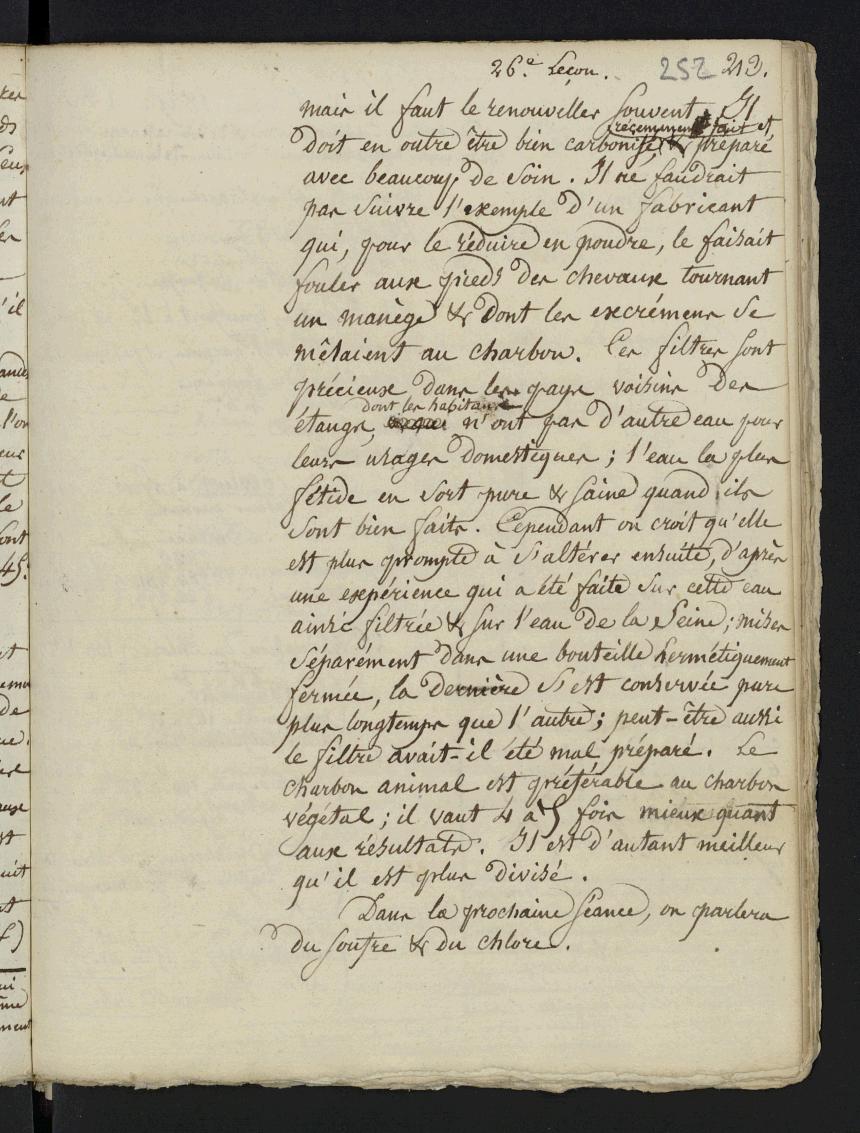 26.e Leçon. 252 213.
mais il faut le renouveller souvent. Il
récemment fait et
doit en outre être bien carbonisé, & préparé
avec beaucoup de soin. Il ne faudrait
pas suivre l'exemple d'un fabricant
qui, pour le réduire en poudre, le faisait
fouler aux pieds des chevaux tournant
un manège & dont les excrémens se
mêlaient au charbon. Ces filtres sont
précieux dans les pays voisins des
dont les habitans
étangs, n'ont pas d'autre eau pour
leurs usages domestiques ; l'eau la plus
fétide en sort pure & saine quand ils
sont bien faits. Cependant on croit qu'elle
est plus prompte à s'altérer ensuite, d'après
une expérience qui a été faite sur cette eau
ainsi filtrée & sur l'eau de la Seine ; mises
séparément dans une bouteille hermétiquement
fermée, la dernière s'est conservée pure
plus longtemps que l'autre ; peut-être aussi
le filtre avait-il été mal préparé. Le
charbon animal est préférable au charbon
végétal ; il vaut 4 à 5 fois mieux quant
aux résultats. Il est d'autant meilleur
qu'il est plus divisé.
Dans la prochaine séance, on parlera
du soufre & du chlore.